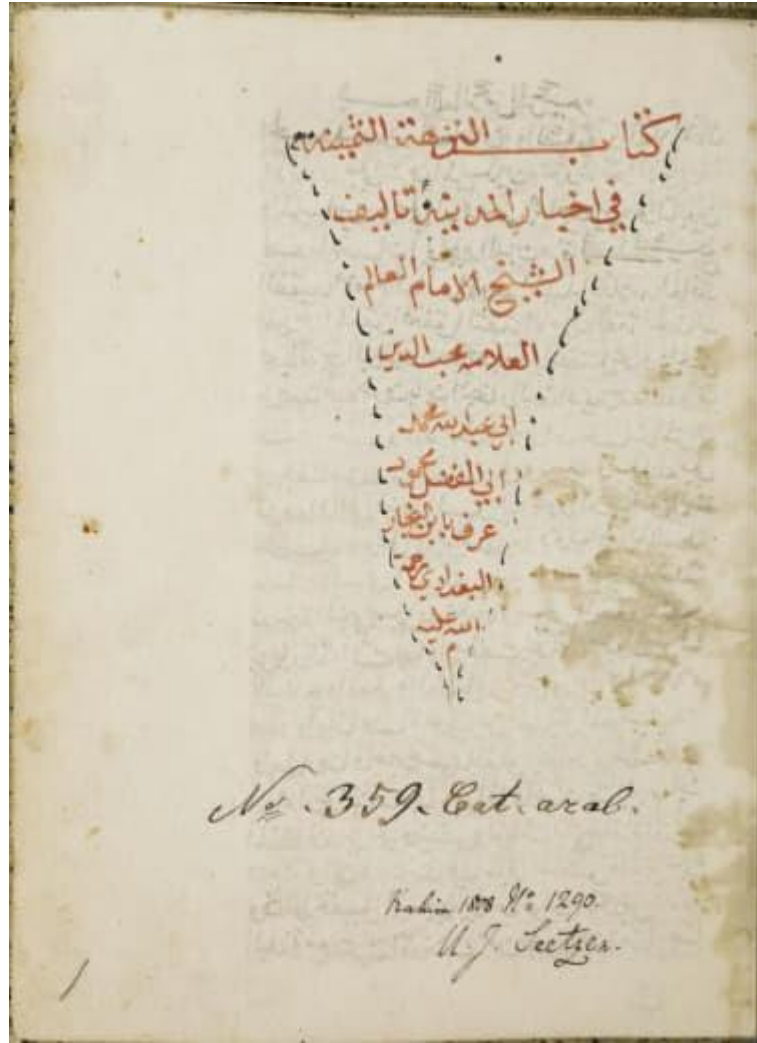 كتاب النزهة الثمينة
في اخبار المدينة تاليف
الشيخ الامام العالم
العلامه محب الدين
ابي عبد الله محمد
ابي الفضل محمود
عرف بابن النجار
البغدادي رحمة
الله عليه
م
No. 359. Cat. arab.
Kahira 1808 No 1290.
U. J. Seetzen.
1